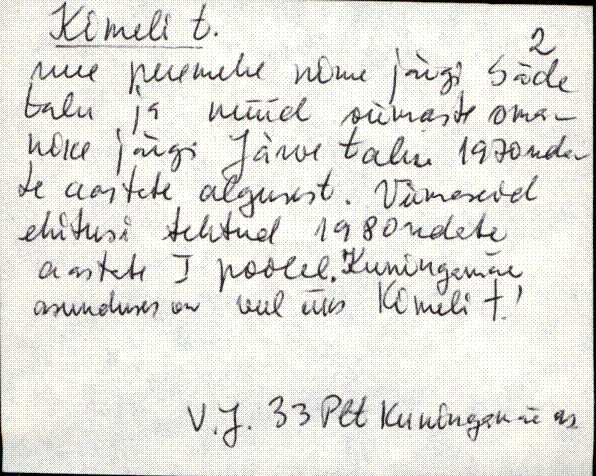 Kimeli t.
2
uue peremehe nime järgi Säde
talu ja nüüd viimaste oma-
nike järgi Järve talu 1970nda-
te aastete algusest. Viimaseid
ehitusi tehtud 1980ndate
aastate I poolel. Kuningamäe
asunduses on veel üks Kimeli t.!
V.J. 33 Plt Kuningamäe as